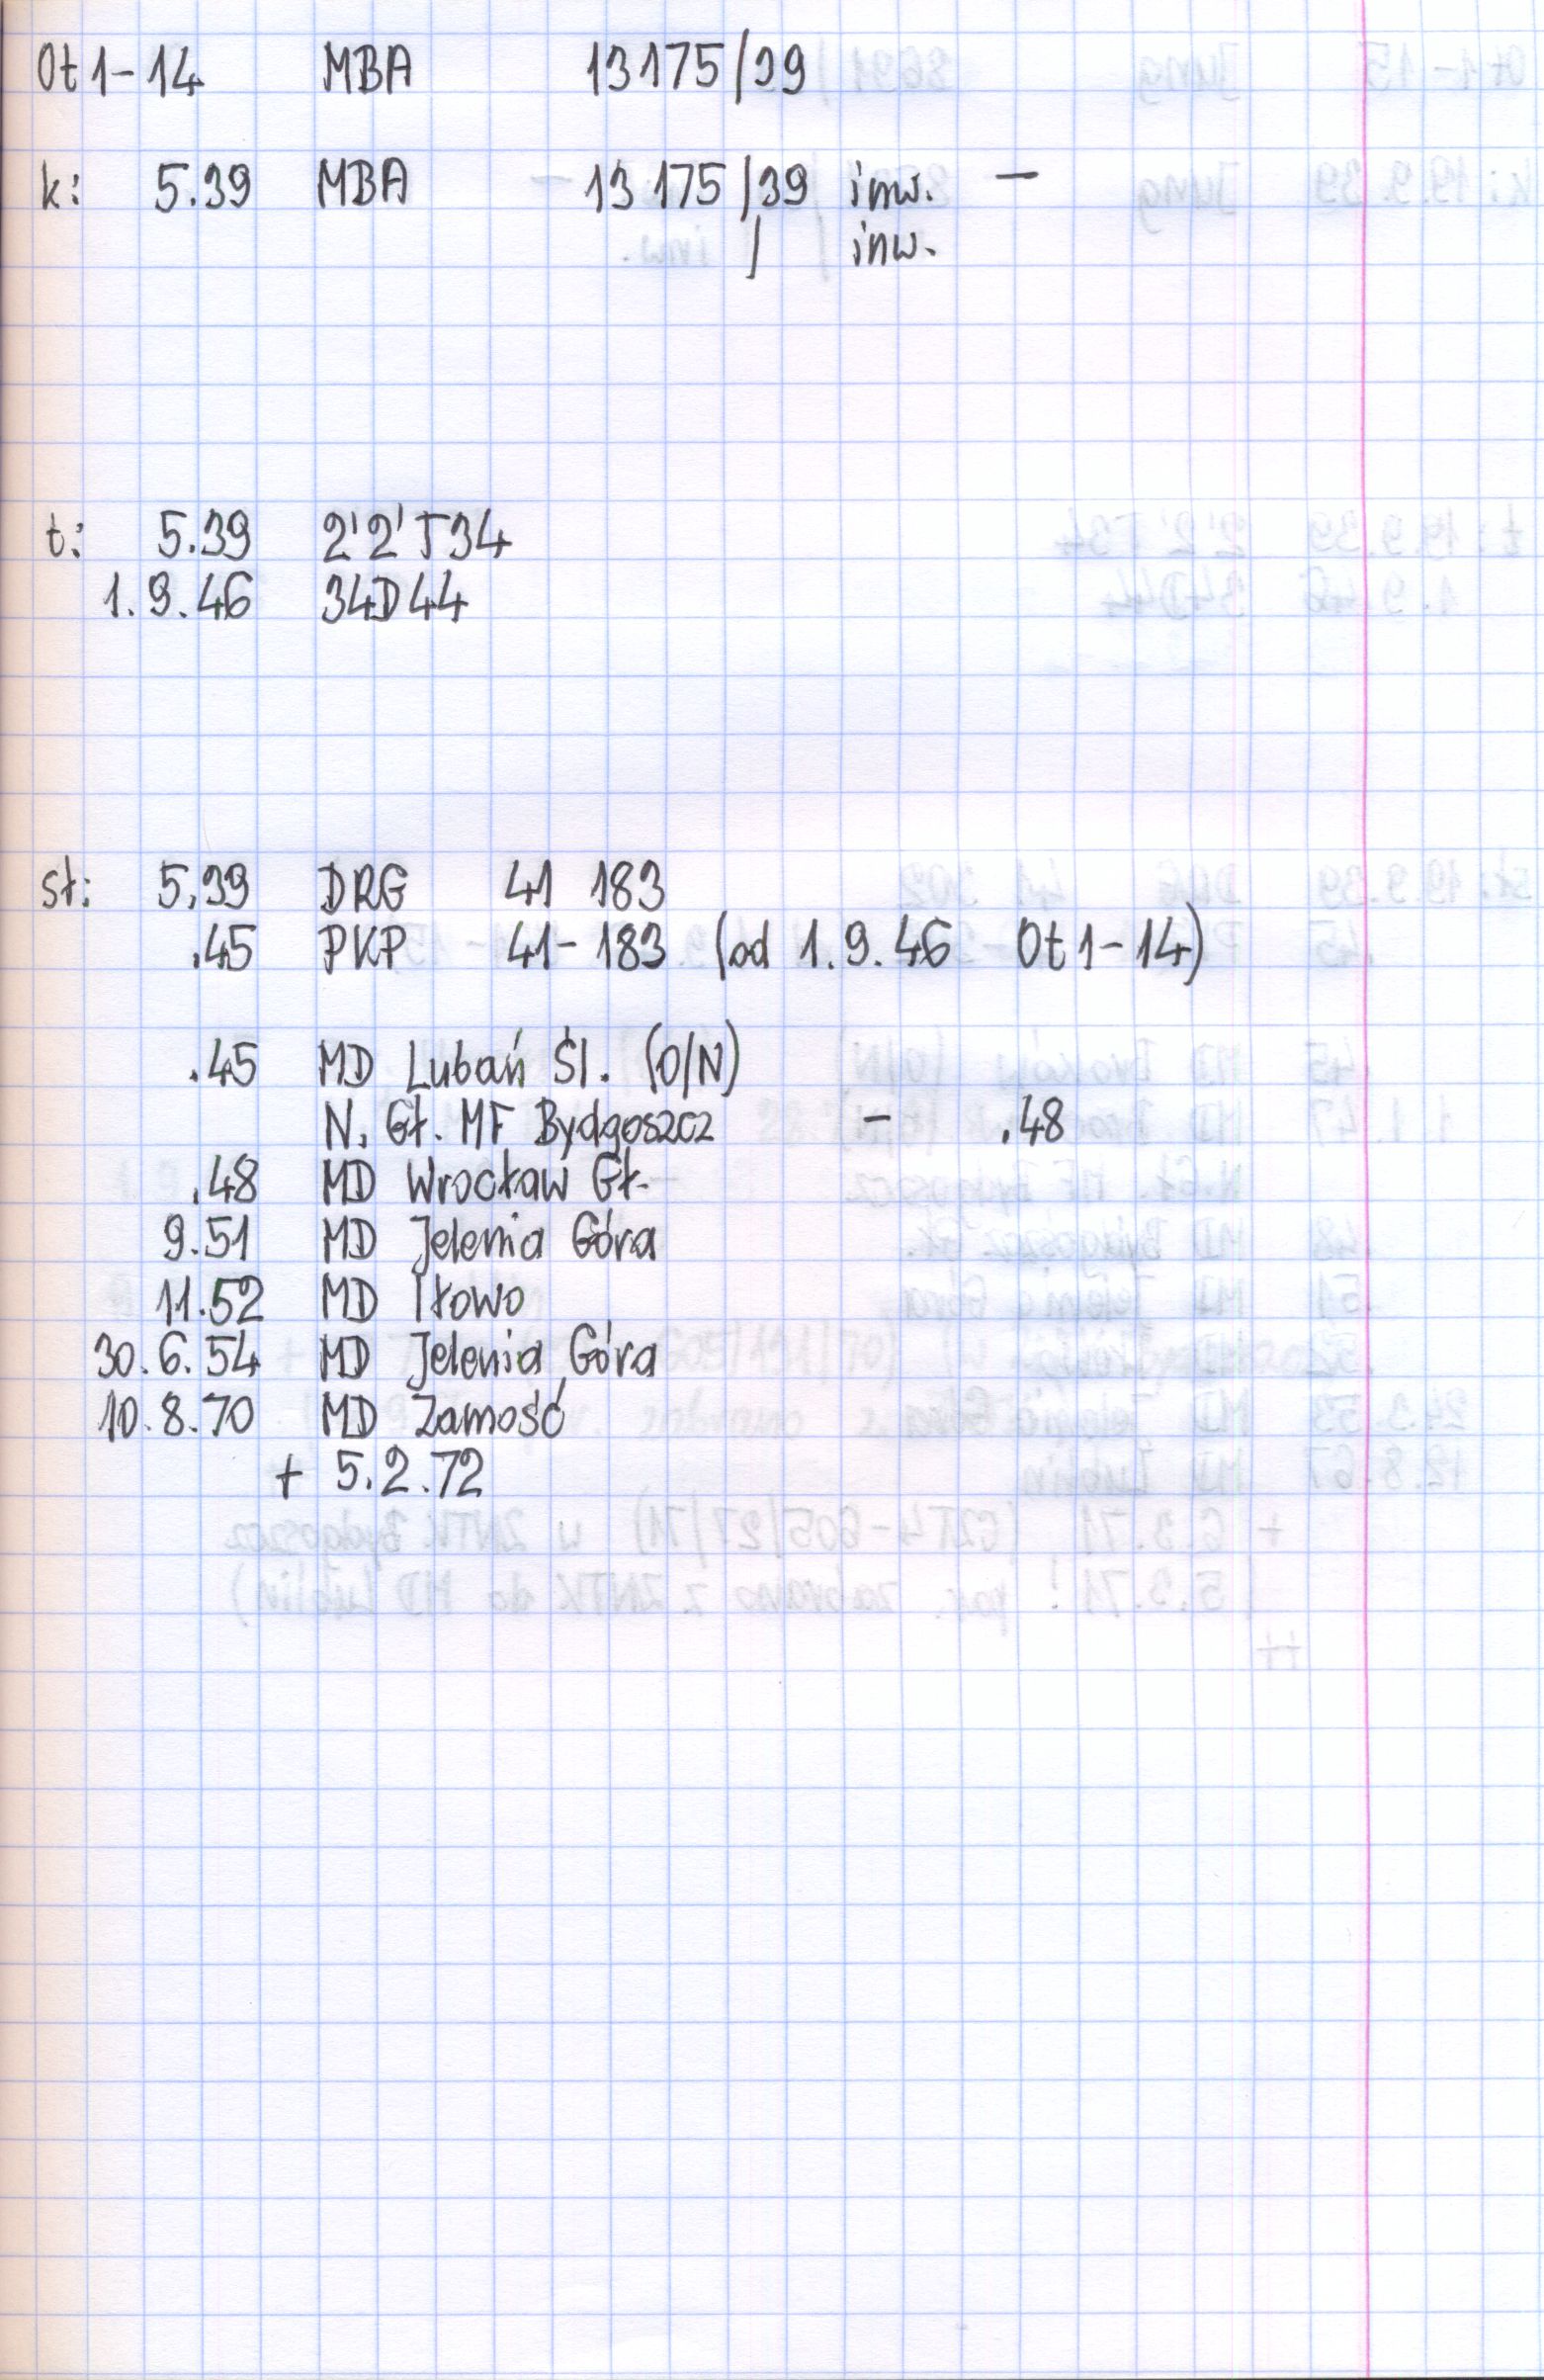 Ot1-14 MBA 13175/39
k: 5.39 MBA 13175/39 inw. -
/ inw.
t: 5.39 2'2'T34
1.9.46 34D44
st: 5.39 DRG 41 183
.45 PKP 41-183 (od 1.9.46 Ot1-14)
.45 MD Lubań Śl. (O/N)
N. Gł. MF Bydgoszcz - .48
.48 MD Wrocław Gł.
9.51 MD Jelenia Góra
11.52 MD Iłowo
30.6.54 MD Jelenia Góra
10.8.70 MD Zamość
+ 5.2.72